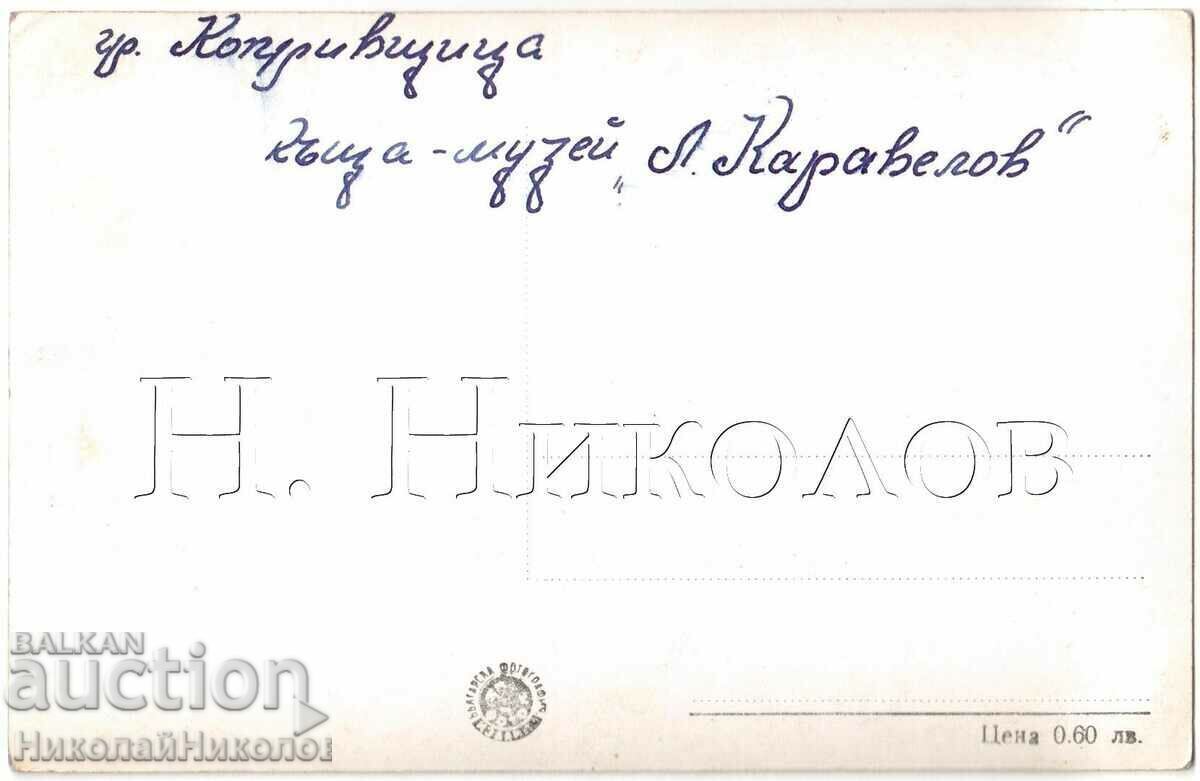 гр. Копривщица
къща-музей „Л. Каравелов"
Н. Николов
BALKAN
auction
НиколайНиколов
БЪЛГАРСКА ФОТОГРАФИЯ
Цена 0.60 лв.